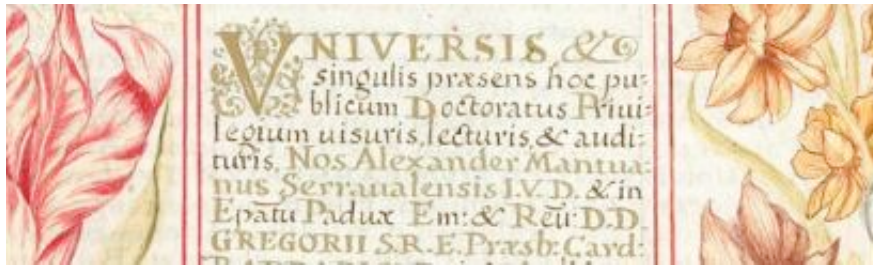 VNIVERSIS, &
singulis præsens hoc pu:
blicum Doctoratus Priui:
legium uisuris, lecturis, & audi:
turis, Nos Alexander Mantua:
nus Serraualensis I.V.D. & in
Epātu Paduæ Em: & Reũ: D.D.
GREGORII S.R.E. Præsb: Card: